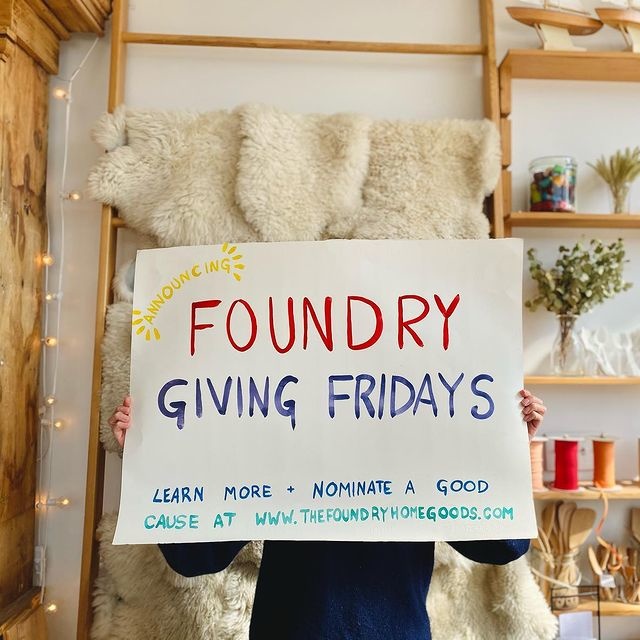 ANNOUNCING
FOUNDRY
GIVING FRIDAYS
LEARN MORE + NOMINATE A GOOD
CAUSE AT WWW.THEFOUNDRYHOMEGOODS.COM